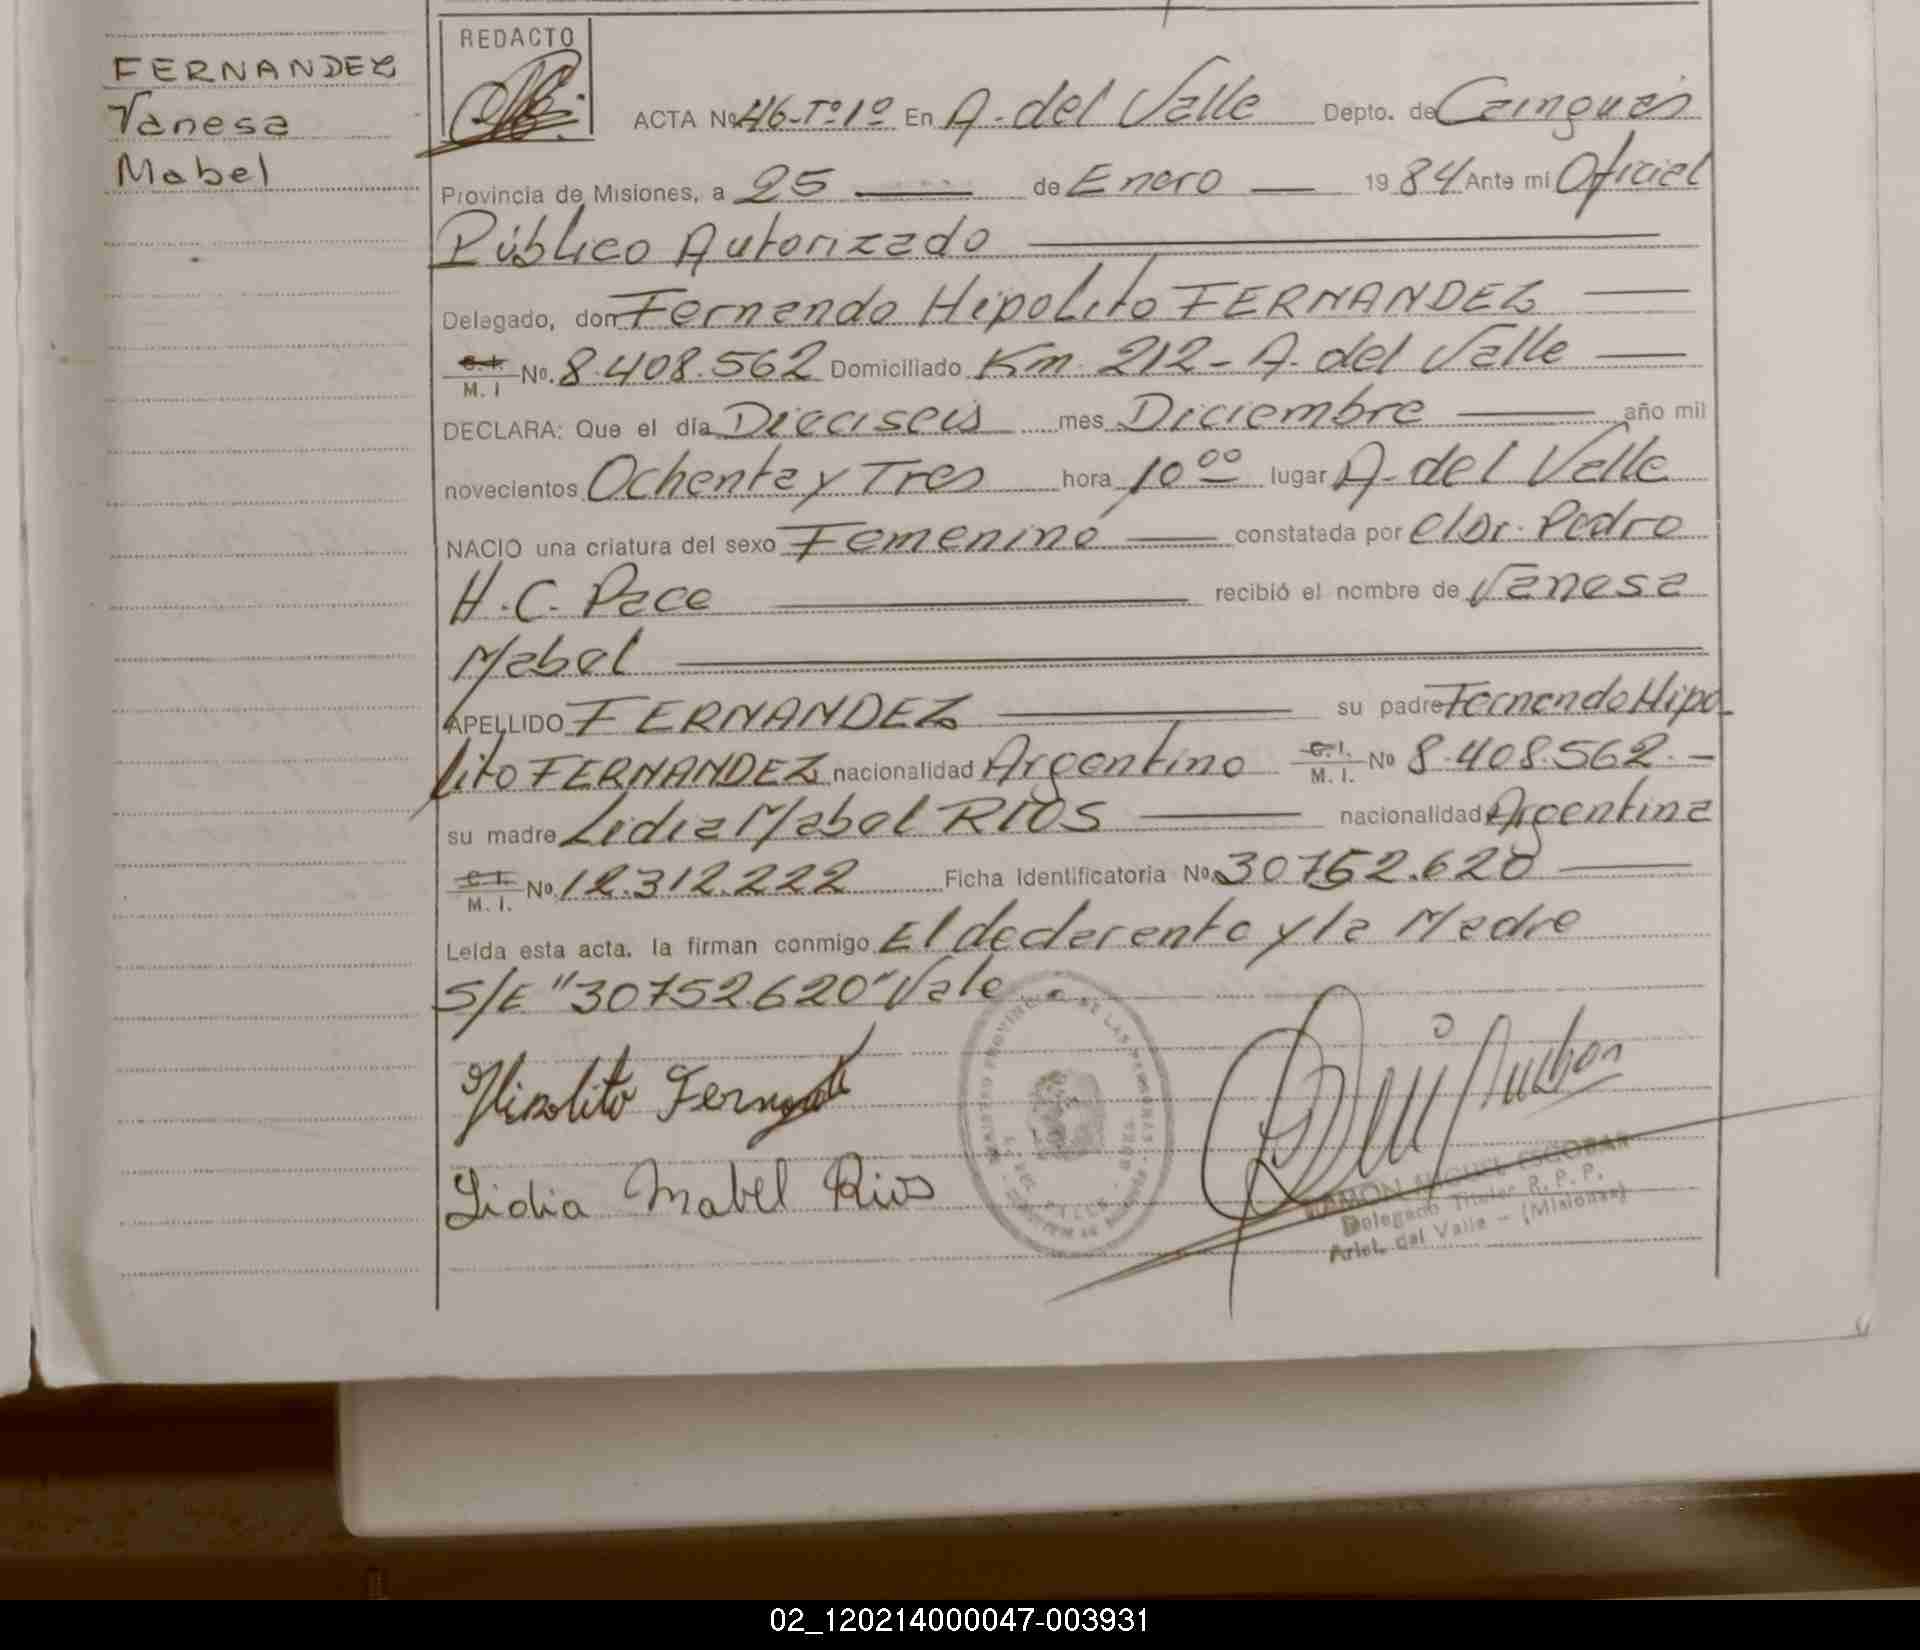 FERNANDEZ
Vanesa
Mabel
REDACTO
ACTA Nº 46-Tº1º En A. del Valle Depto. de Cainguás
Provincia de Misiones, a 25 de Enero 1984 Ante mi Oficial
Público Autorizado
Delegado, don Fernando Hipolito FERNANDEZ
C.I. M. I No. 8.408.562 Domiciliado Km. 212- A. del Valle
DECLARA: Que el día Dieciseis mes Diciembre año mil
novecientos Ochenta y Tres hora 10ºº lugar A. del Valle
NACIO una criatura del sexo Femenino constatada por el Dr. Pedro
H.C. Pace recibió el nombre de Vanesa
Mabel
APELLIDO FERNANDEZ su padre Fernando Hipo
lito FERNANDEZ nacionalidad Argentino C.I. M. I. Nº 8.408.562.-
su madre Lidia Mabel RIOS nacionalidad Argentina
C.I. M. I. Nº. 12.312.222 Ficha Identificatoria Nº 30752.620
Leída esta acta. la firman conmigo El declarante y la Madre
S/E "30752.620" Vale
Hipolito Fernandez
Lidia Mabel Rios
RAMON MIGUEL ESCOBAR
Delegado Titular R. P. P.
Arist. del Valle - (Misiones)
02_120214000047-003931